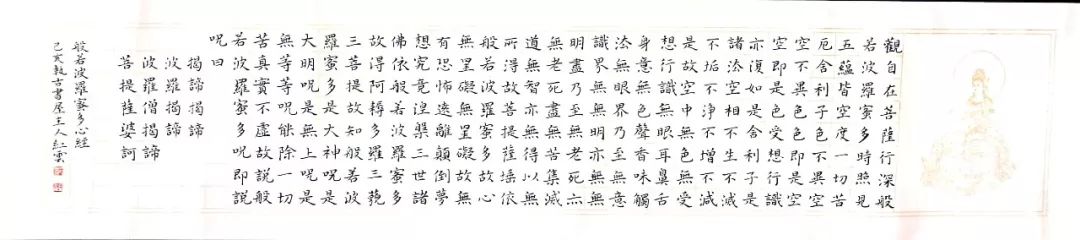 觀自在菩薩行深般
若波羅蜜多時照見
五蘊皆空度一切苦
厄舍利子色不異空
空不異色色即是空
空即是色受想行識
亦復如是舍利子是
諸法空相不生不滅
不垢不淨不增不減
是故空中無色無受
想行識無眼耳鼻舌
身意無色聲香味觸
法無眼界乃至無意
識界無無明亦無無
明盡乃至無老死亦
無老死盡無苦集滅
道無智亦無得以無
所得故菩提薩埵依
般若波羅蜜多故心
無罣礙無罣礙故無
有恐怖遠離顛倒夢
想究竟涅槃三世諸
佛依般若波羅蜜多
故得阿耨多羅三藐
三菩提故知般若波
羅蜜多是大神呪是
大明呪是無上呪是
無等等呪能除一切
苦真實不虛故說般
若波羅蜜多呪即說
呪曰
揭諦揭諦
波羅揭諦
波羅僧揭諦
菩提薩婆訶
般若波羅蜜多心經
己亥執古書屋主人紅雲